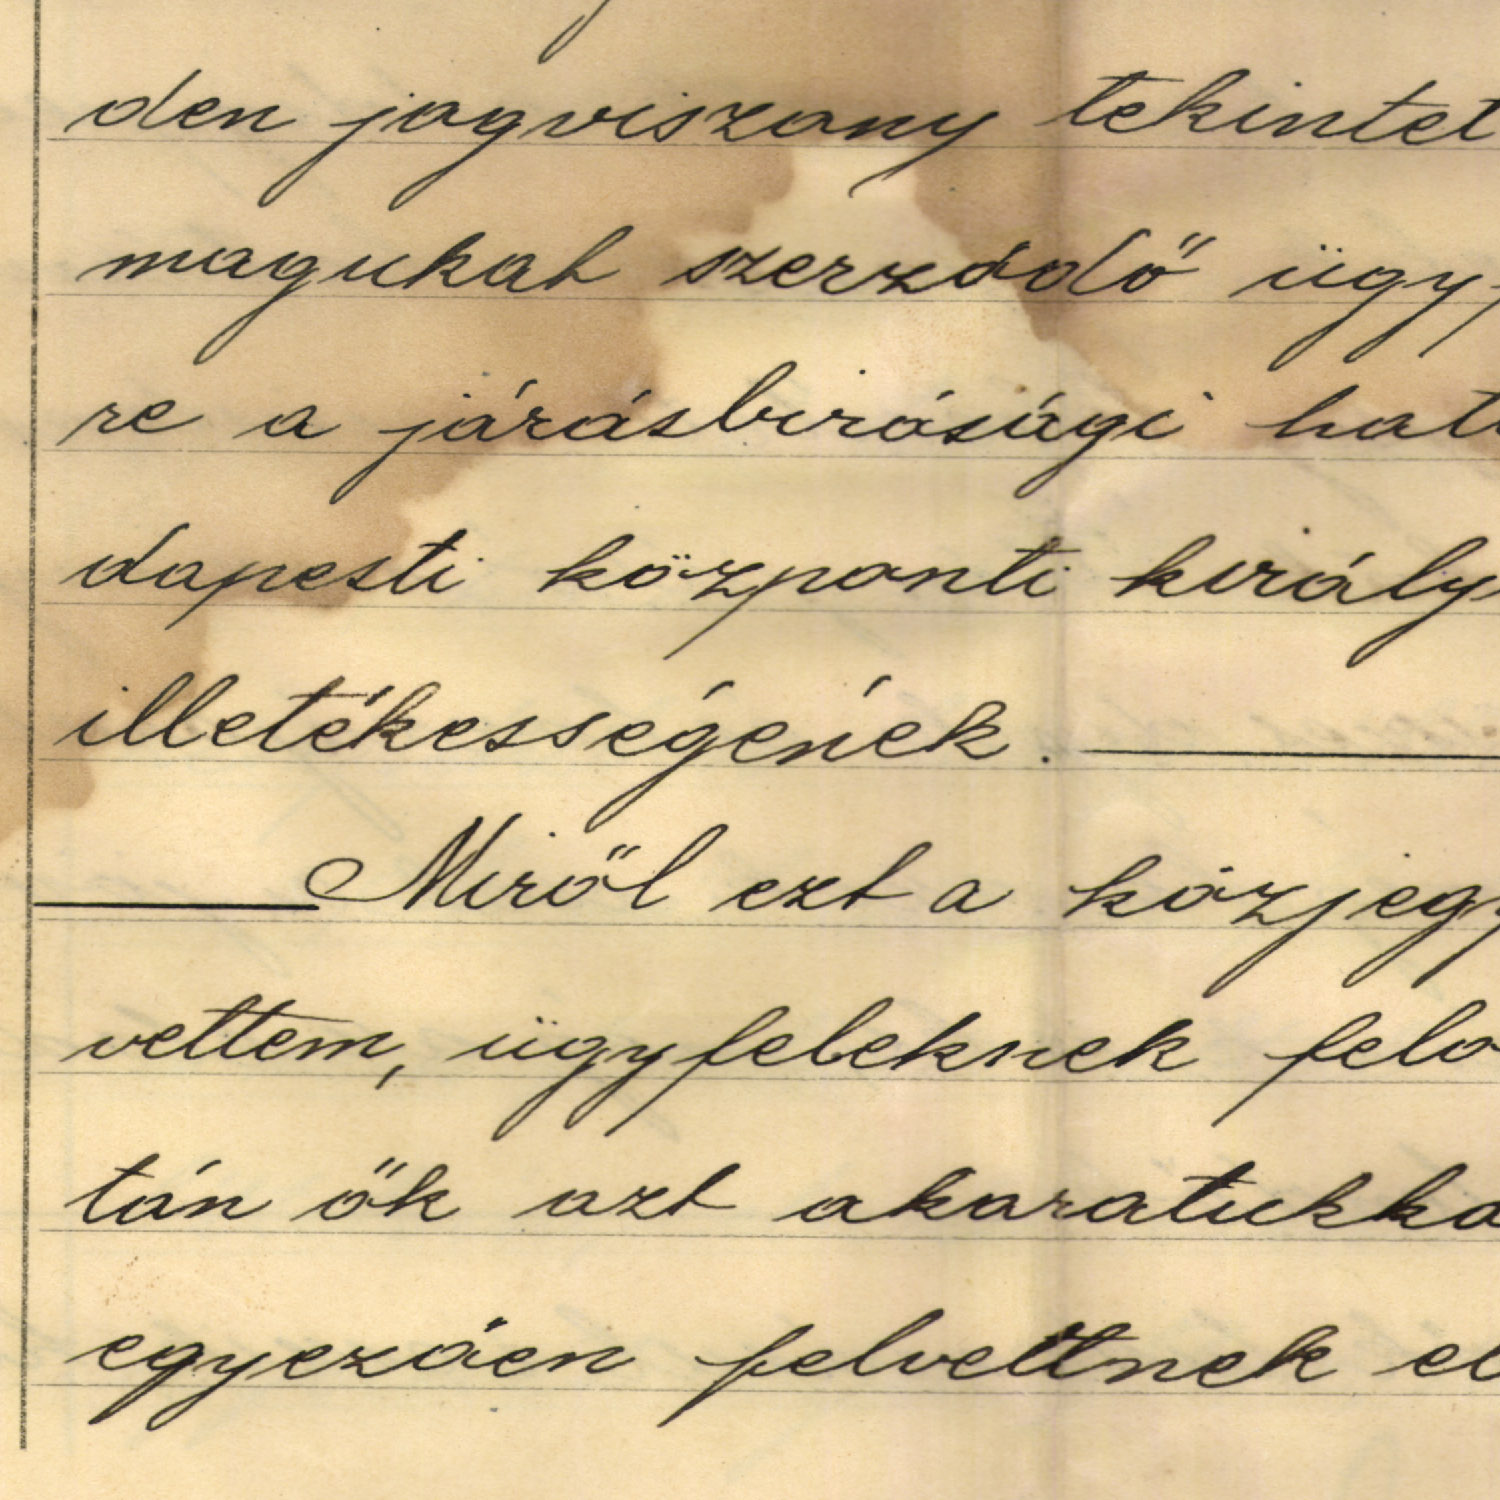 den jogviszony tekintet
magukat szerződő ügyf
re a járásbirósági hat
dapesti központi király
illetékességének.
Miről ezt a közjegy
vettem, ügyfeleknek felo
tán ők azt akaratukka
egyezően felvettnek el